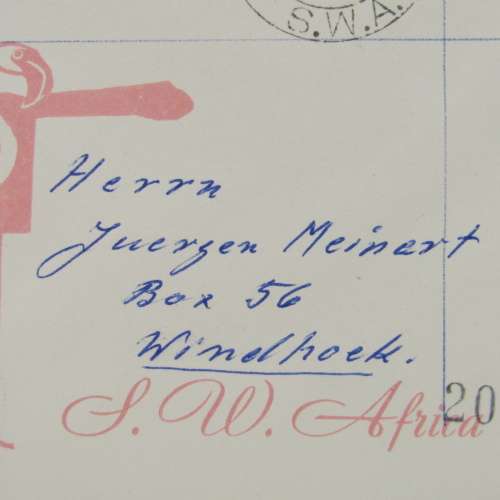 S.W.A.
Herrn
Juergen Meinert
Box 56
Windhoek.
S. W. Africa
20